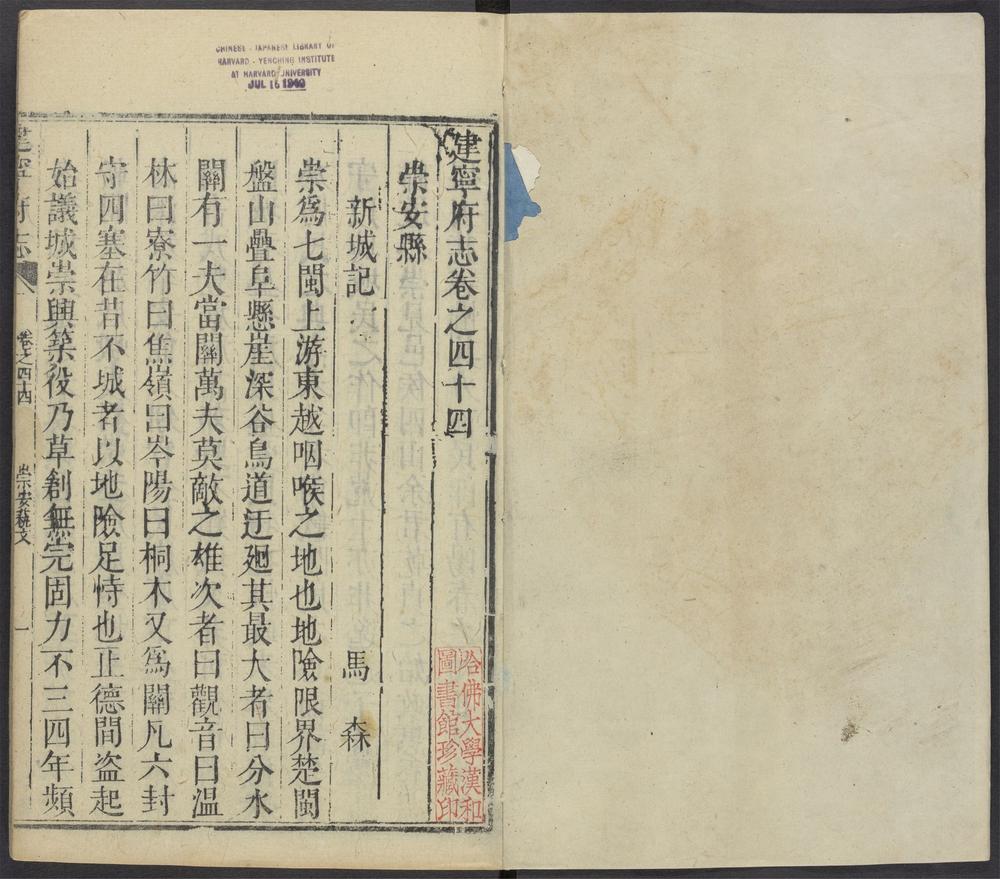 CHINESE - JAPANESE LIBRARY OF
HARVARD - YENCHING INSTITUTE
AT HARVARD UNIVERSITY
JUL 16 1940
建寧府志卷之四十四
崇安縣
新城記 馬森
崇爲七閩上游東越咽喉之地也地險限界楚閩
盤山疊阜懸崖深谷鳥道迂廻其最大者曰分水
關有一夫當關萬夫莫敵之雄次者曰觀音曰溫
林曰寮竹曰焦嶺曰岑陽曰桐木又爲關凡六封
守四塞在昔不城者以地險足恃也正德間盗起
始議城崇興築役乃草創無完固力不三四年頹
建寧府志 卷之四十四 崇安藝文 一
哈佛大學漢和
圖書館珍藏印